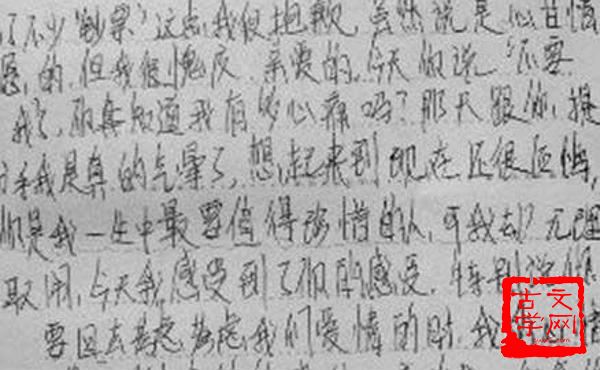 了不少"钞票"这点,我很抱歉,虽然说是心甘情
愿的,但我很愧疚.亲爱的,今天你说"不要
我",你真知道我有多心痛吗?那天跟你提
分手我是真的气晕了,想起来到现在还很后悔,
你是我一生中最要值得珍惜的人,可我却?无理
取闹,今天我感受到了你的感受.特别说你
要回去考虑考虑我们爱情的时
古文
学网